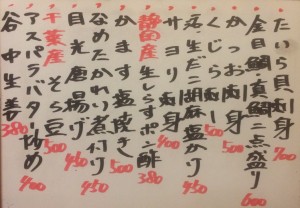 たいら貝刺身 700
金目鯛・真鯛二点盛り 600
かつお刺身 500
くじら刺し 500
活・生だこ胡麻塩かけ 450
サヨリ刺身 400
静岡産生しらすポン酢 380
かます塩焼き 500
なめたかれい煮付け 450
目光唐揚げ 450
千葉産そら豆 500
アスパラバター炒め 400
谷中生姜 380